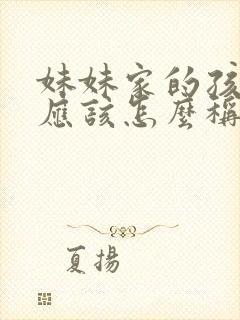 妹妹家的孩
應該怎麼稱
夏揚